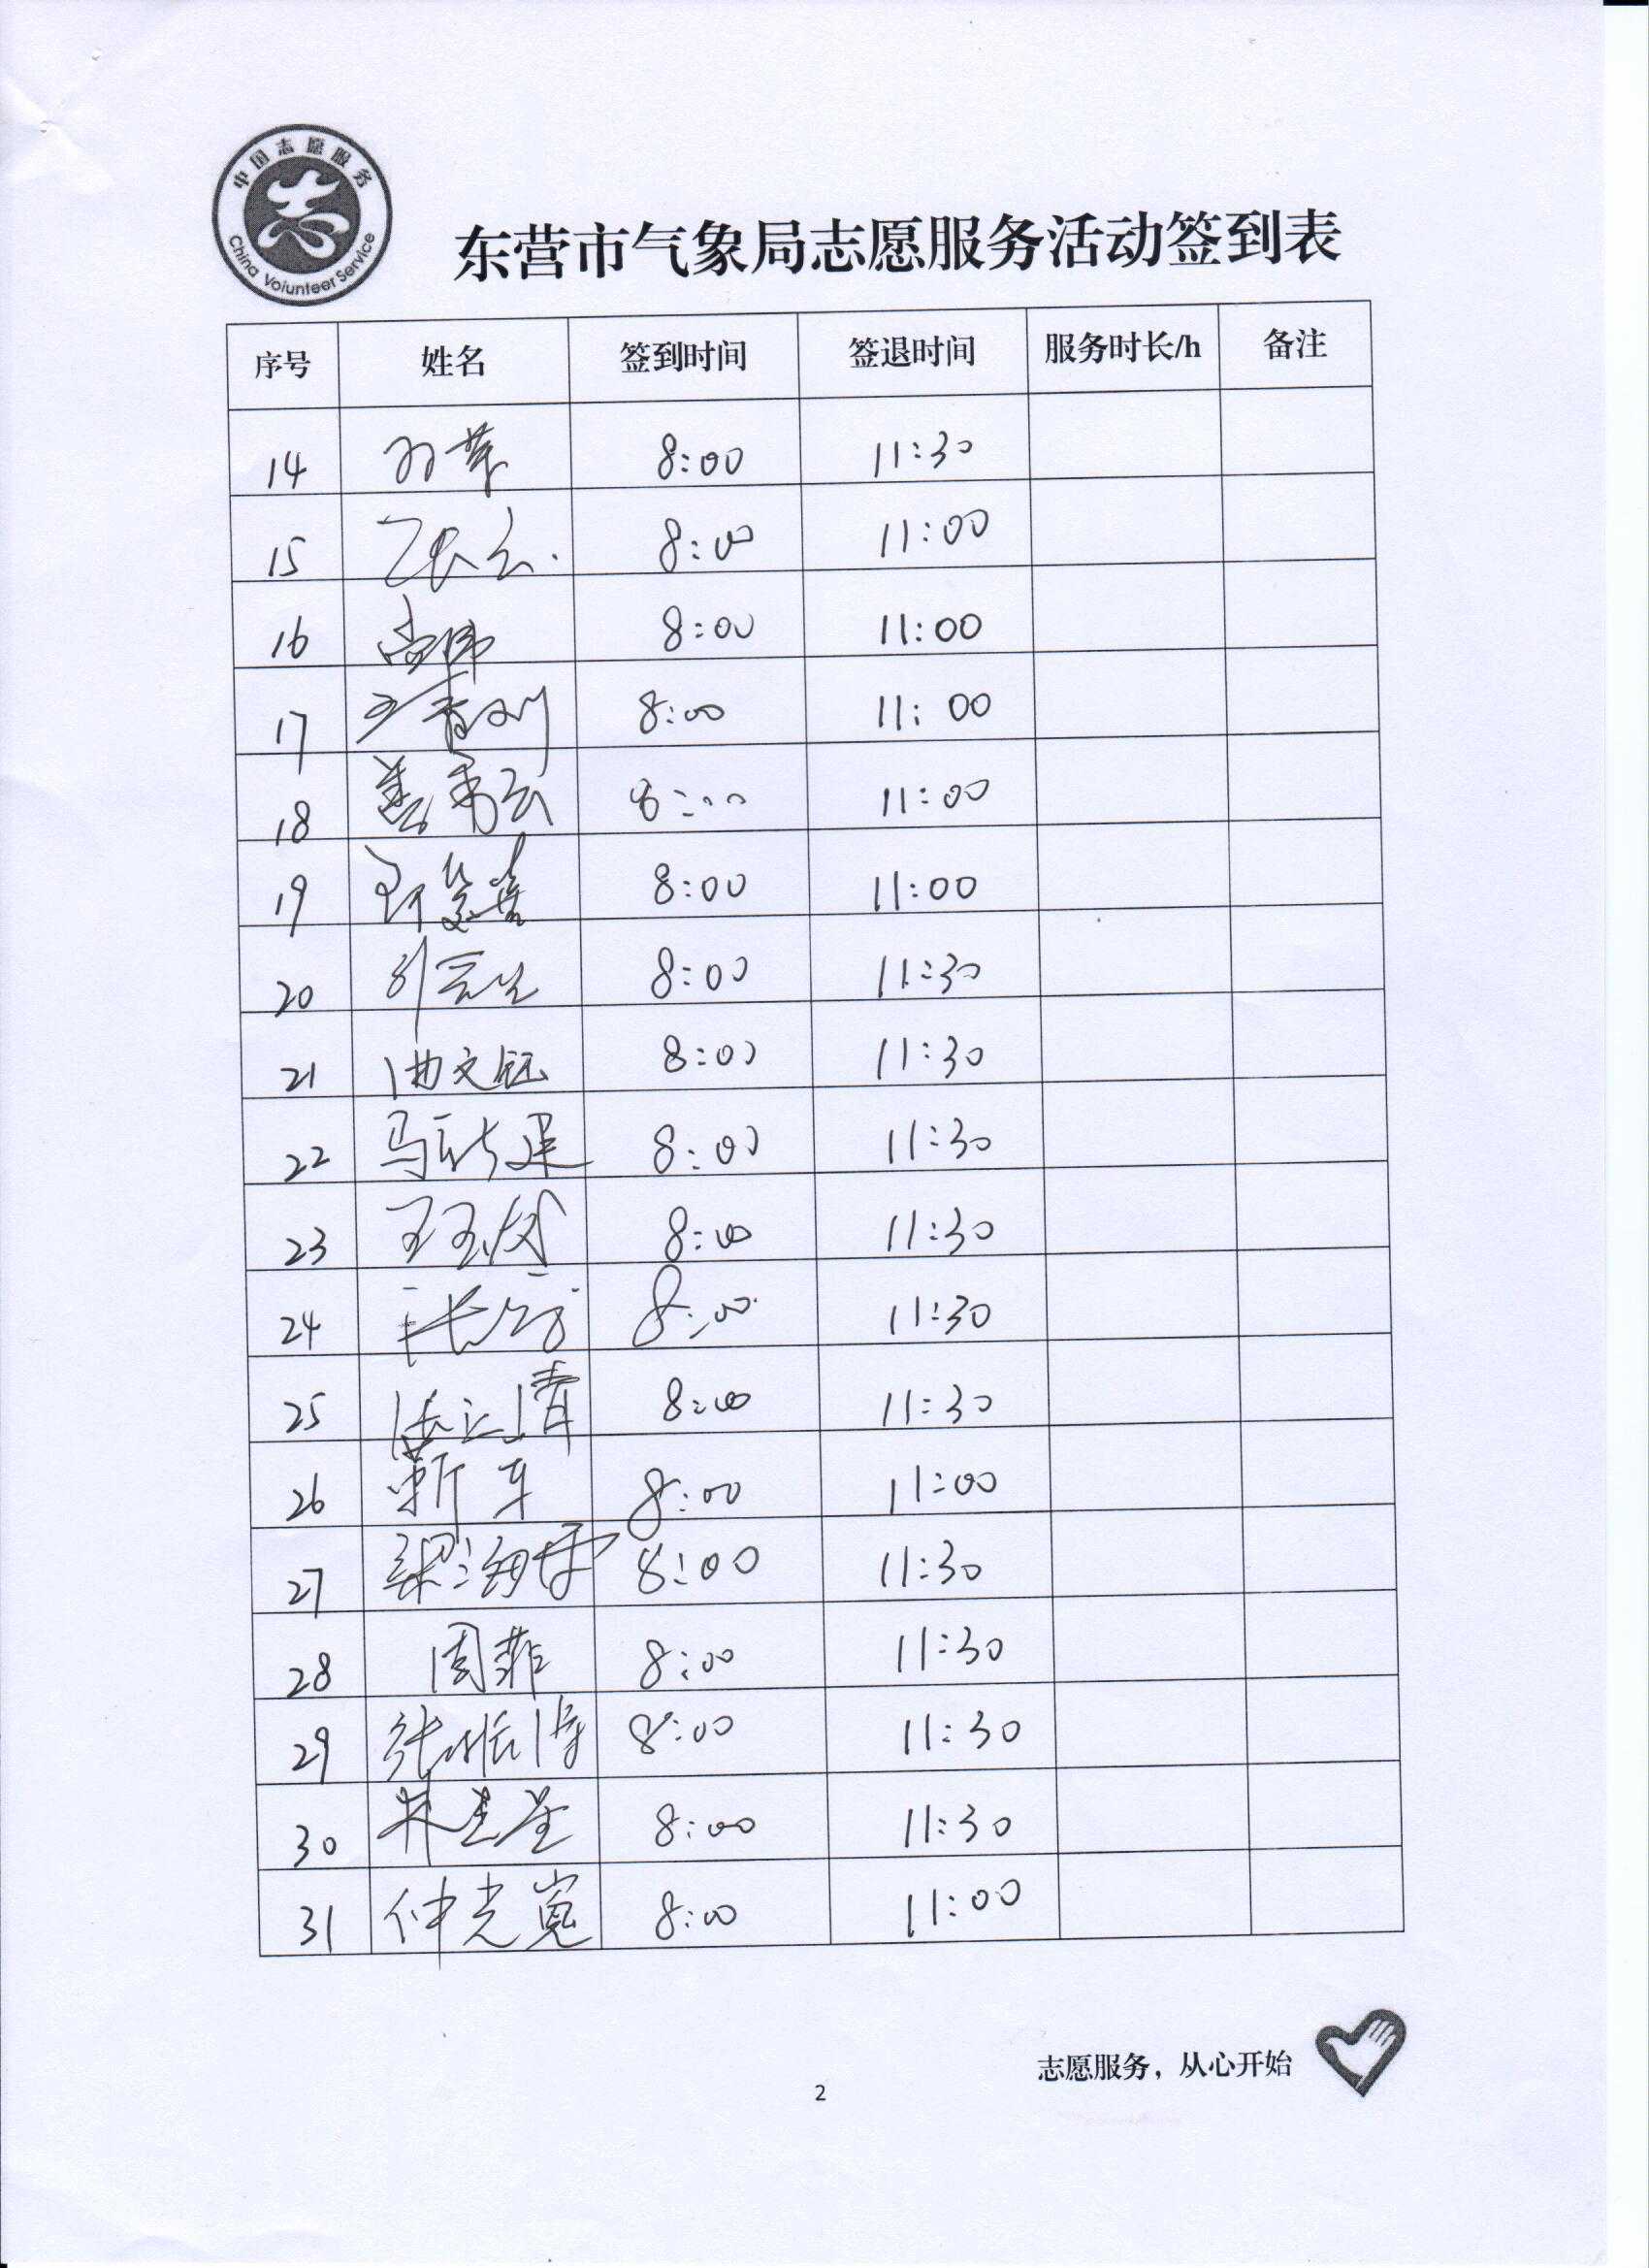 中国志愿服务
China Volunteer Service
东营市气象局志愿服务活动签到表
序号 姓名 签到时间 签退时间 服务时长/h 备注
14 8:00 11:30
15 8:00 11:00
16 尚伟 8:00 11:00
17 8:00 11:00
18 8:00 11:00
19 8:00 11:00
20 8:00 11:30
21 曲文钰 8:00 11:30
22 马新建 8:00 11:30
23 8:00 11:30
24 8:00 11:30
25 8:00 11:30
26 靳军 8:00 11:00
27 梁海霞 8:00 11:30
28 周菲 8:00 11:30
29 8:00 11:30
30 8:00 11:30
31 仲光嵬 8:00 11:00
志愿服务，从心开始
2